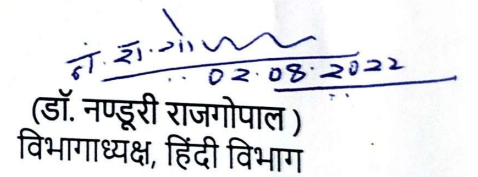 न. रा. गो
02.08.2022
(डॉ. नण्डूरी राजगोपाल )
विभागाध्यक्ष, हिंदी विभाग